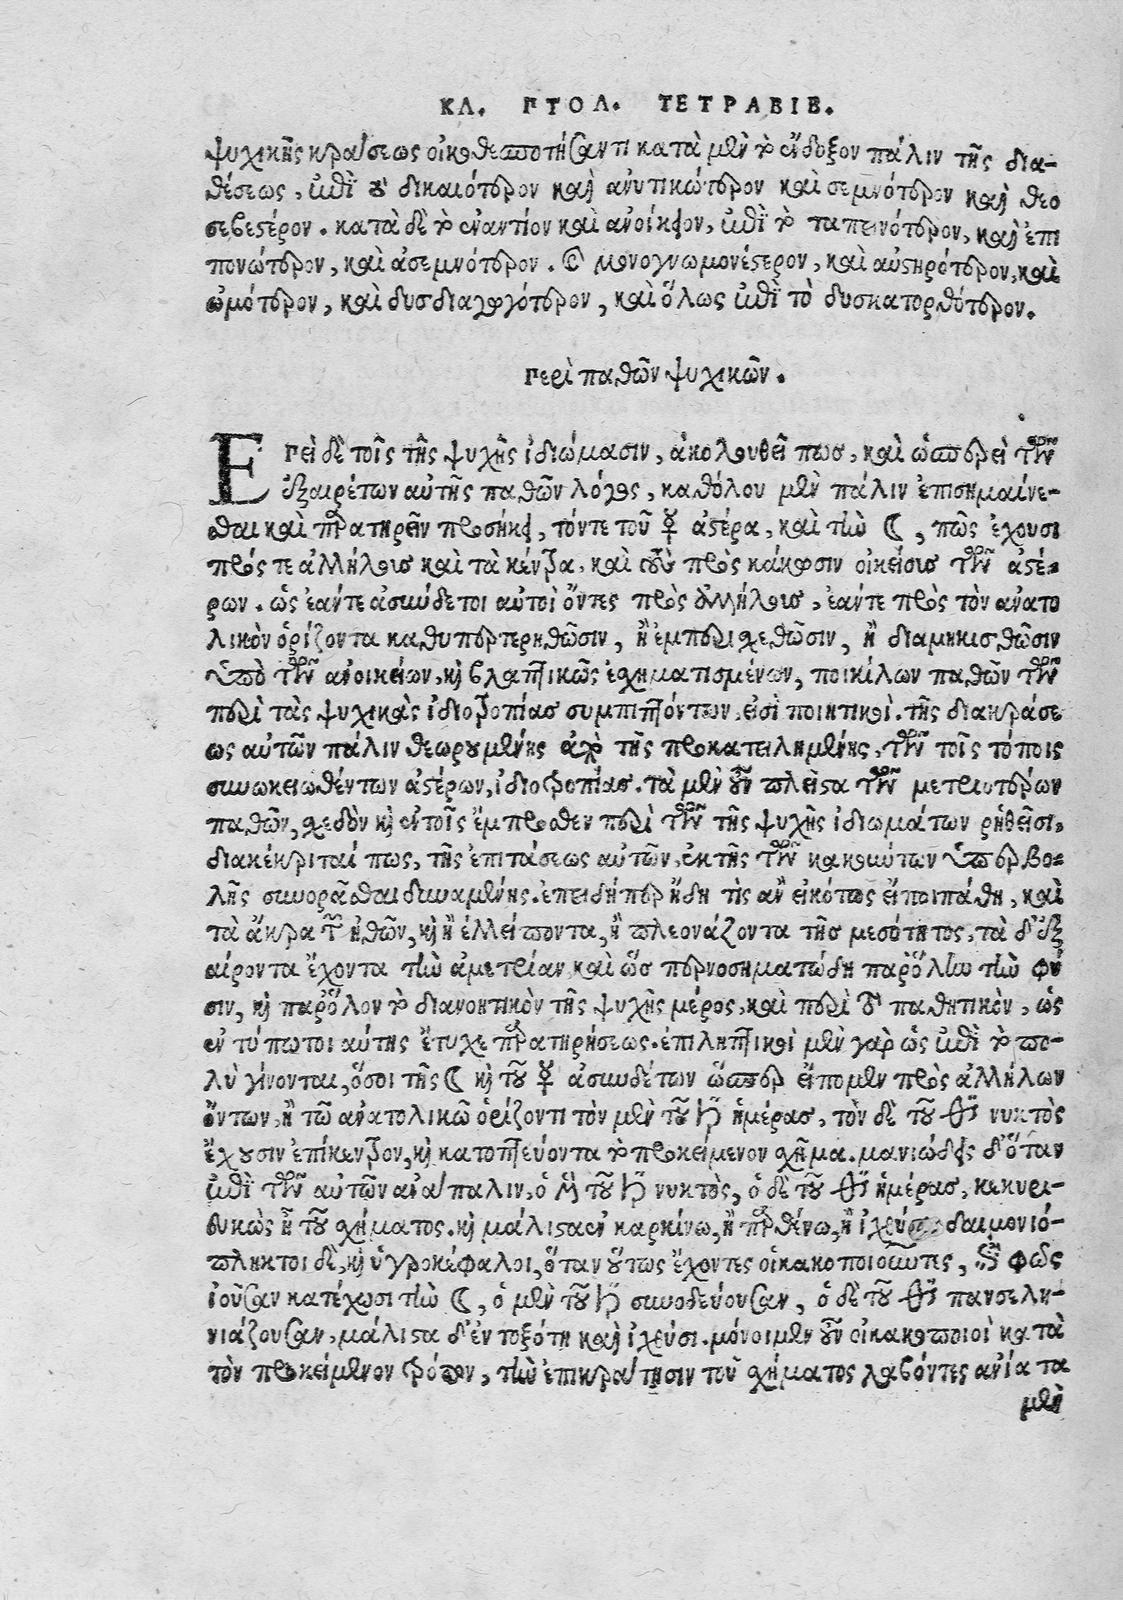 ΚΛ. ΠΤΟΛ. ΤΕΤΡΑΒΙΒ.
ψυχικῆς κράσεως οἰκοδεσποτήσαντι κατὰ μὲν τὸ ἔνδοξον πάλιν τῆς δια-
θέσεως, ἐπὶ τὸ δικαιότερον καὶ ἀνυτικώτερον καὶ σεμνότερον καὶ θεο
σεβεστέρον. κατὰ δὲ τὸ ἐναντίον καὶ ἀνοίκειον, ἐπὶ τὸ ταπεινότερον, καὶ ἐπι
πονώτερον, καὶ ἀσεμνότερον. καὶ μονογνωμονέστερον, καὶ αὐστηρότερον, καὶ
ὠμότερον, καὶ δυσδιαγωγότερον, καὶ ὅλως ἐπὶ τὸ δυσκατορθότερον.
Περὶ παθῶν ψυχικῶν.
ΕΠεὶ δὲ τοῖς τῆς ψυχῆς ἰδιώμασιν, ἀκολουθεῖ πως, καὶ ὡσπερεὶ τῶν
ἐξαιρέτων αὐτῆς παθῶν λόγος, καθόλου μὲν πάλιν ἐπισημαίνε-
σθαι καὶ παρατηρεῖν προσήκει, τόντε τοῦ ☿ ἀστέρα, καὶ τὴν ☾, πῶς ἔχουσι
πρός τε ἀλλήλους καὶ τὰ κέντρα, καὶ τοὺς πρὸς κάκωσιν οἰκείους τῶν ἀστέ-
ρων. ὡς ἐάντε ἀσύνδετοι αὐτοὶ ὄντες πρὸς ἀλλήλους, ἐάντε πρὸς τὸν ἀνατο
λικὸν ὁρίζοντα καθυπερτερηθῶσιν, ἢ ἐμπερισχεθῶσιν, ἢ διαμηκισθῶσιν
ὑπὸ τῶν ἀνοικείων, καὶ βλαπτικῶς ἐσχηματισμένων, ποικίλων παθῶν τῶν
περὶ τὰς ψυχικὰς ἰδιοτροπίας συμπιπτόντων, εἰσὶ ποιητικοὶ. τῆς διακράσε
ως αὐτῶν πάλιν θεωρουμένης ἀπὸ τῆς προκατειλημμένης, τῶν τοῖς τόποις
συνῳκειωθέντων ἀστέρων, ἰδιοτροπίας. τὰ μὲν οὖν πλεῖστα τῶν μετριωτέρων
παθῶν, σχεδὸν καὶ ἐν τοῖς ἔμπροσθεν περὶ τῶν τῆς ψυχῆς ἰδιωμάτων ῥηθεῖσι,
διακέκριταί πως, τῆς ἐπιτάσεως αὐτῶν, ἐκ τῆς τῶν κακούντων ὑπερβο-
λῆς συνορᾶσθαι δυναμένης. ἐπειδήπερ ἤδη τὶς ἂν εἰκότως εἴποι πάθη, καὶ
τὰ ἄκρα τῶν ἠθῶν, καὶ ἢ ἐλλείποντα, ἢ πλεονάζοντα τῆς μεσότητος, τὰ δ' ἐξ
αίροντα ἔχοντα τὴν ἀμετρίαν καὶ ὥσπερ νοσηματώδη παρ' ὅλην τὴν φύ
σιν, καὶ παρ' ὅλον τὸ διανοητικὸν τῆς ψυχῆς μέρος, καὶ περὶ τὸ παθητικὸν, ὡς
ἐν τύπῳ τοιαύτης ἔτυχε παρατηρήσεως. ἐπιληπτικοὶ μὲν γὰρ ὡς ἐπὶ τὸ πο-
λὺ γίνονται, ὅσοι τῆς ☾ καὶ τοῦ ☿ ἀσυνδέτων ὥσπερ εἴπομεν πρὸς ἀλλήλων
ὄντων, ἢ τῷ ἀνατολικῷ ὁρίζοντι τὸν μὲν τοῦ ♄ ἡμέρας, τὸν δὲ τοῦ ♂ νυκτὸς
ἔχουσιν ἐπίκεντρον, καὶ κατοπτεύοντα τὸ προκείμενον σχῆμα. μανιώδεις δ' ὅταν
ἐπὶ τῶν αὐτῶν ἀνάπαλιν, ὁ μὲν τοῦ ♄ νυκτὸς, ὁ δὲ τοῦ ♂ ἡμέρας, κεκυρι-
ευκὼς ᾖ τοῦ σχήματος. καὶ μάλιστα ἐν καρκίνῳ, ἢ παρθένῳ, ἢ ἰχθύσι δαιμονιό-
πληκτοι δὲ, καὶ ὑγροκέφαλοι, ὅταν οὕτως ἔχοντες οἱ κακοποιοῦντες, ἐπὶ φῶς
ἰοῦσαν κατέχωσι τὴν ☾, ὁ μὲν τοῦ ♄ συνοδεύουσαν, ὁ δὲ τοῦ ♂ πανσελη-
νιάζουσαν, μάλιστα δ' ἐν τοξότῃ καὶ ἰχθύσι. μόνοι μὲν οὖν οἱ κακοποιοὶ κατὰ
τὸν προκείμενον τρόπον, τὴν ἐπικράτησιν τοῦ σχήματος λαβόντες ἀνίατα
μὲν